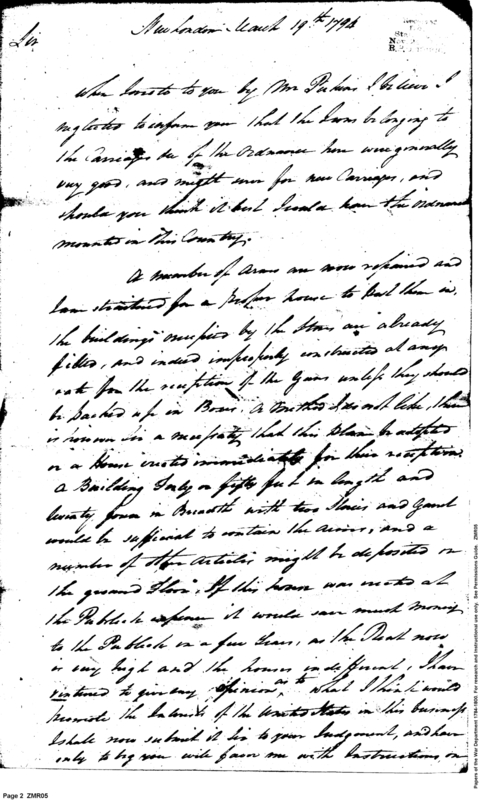 New London March 19th 1794
Sir
When I wrote to you by Mr Perkins I believe I
neglected to inform you that the Irons belonging to
the Carriages &c of the Ordnance here were generally
very good, and might serve for new Carriages, and
should you think it best I would have the Ordnance
mounted in this Country.
A number of Arms are now repaired and
I am straitened for a proper house to Put them in.
the buildings occupied by the Stores are already
filled, and indeed improperly constructed at any
rate for the reception of the Guns unless they should
be packed up in Boxes. A method I do not like, there
is however a necessity that this Plan be adopted
or a House erected immediately for their reception.
a Building Forty or fifty feet in length and
twenty four in Breadth with two Stories and Garret
would be sufficient to contain the arms, and a
number of other Articles might be deposited on
the ground Floor. If this house was erected at
the Publick expence it would save much money
to the Publick in a few Years, as the Rent now
is very high and the houses indifferent, I have
ventured to give my Opinion, as to what I think would
promote the Interest of the United States in this business
I shall now submit it Sir to your Judgment, and have
only to beg you will favor me with Instructions on
Page 2 ZMR05
Papers of the War Department 1784-1800. For research and instructional use only. See Permissions Guide. ZMR05